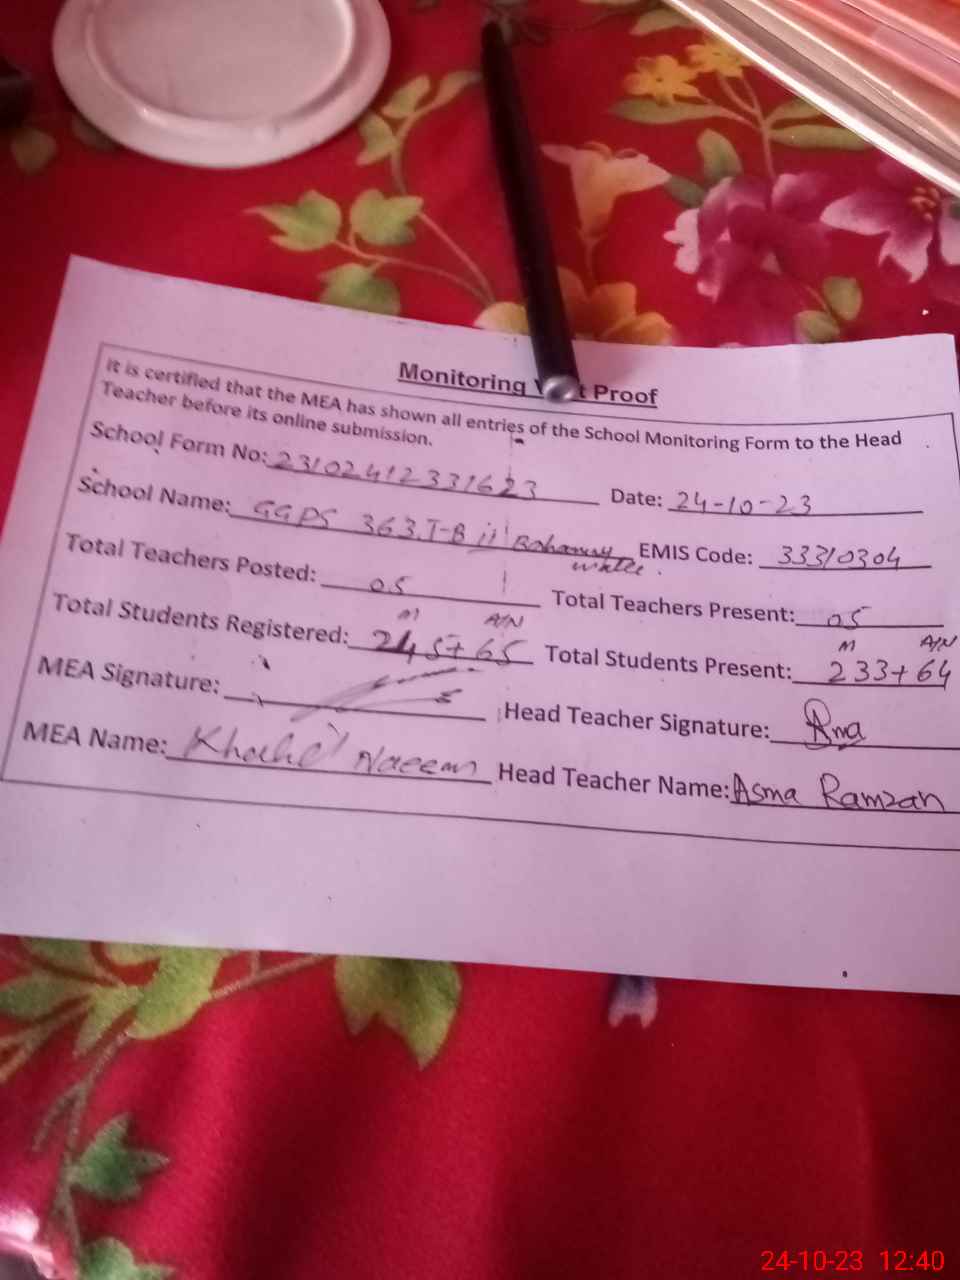 Monitoring Proof
It is certified that the MEA has shown all entries of the School Monitoring Form to the Head
Teacher before its online submission.
School Form No: 23102412331623 Date: 24-10-23
School Name: GGPS 363.T-B EMIS Code: 33310304
Total Teachers Posted: 05 Total Teachers Present: 05
M A/N M A/N
Total Students Registered: 245+65 Total Students Present: 233+64
MEA Signature: Head Teacher Signature:
MEA Name: Naeem Head Teacher Name: Asma Ramzan
24-10-23 12:40